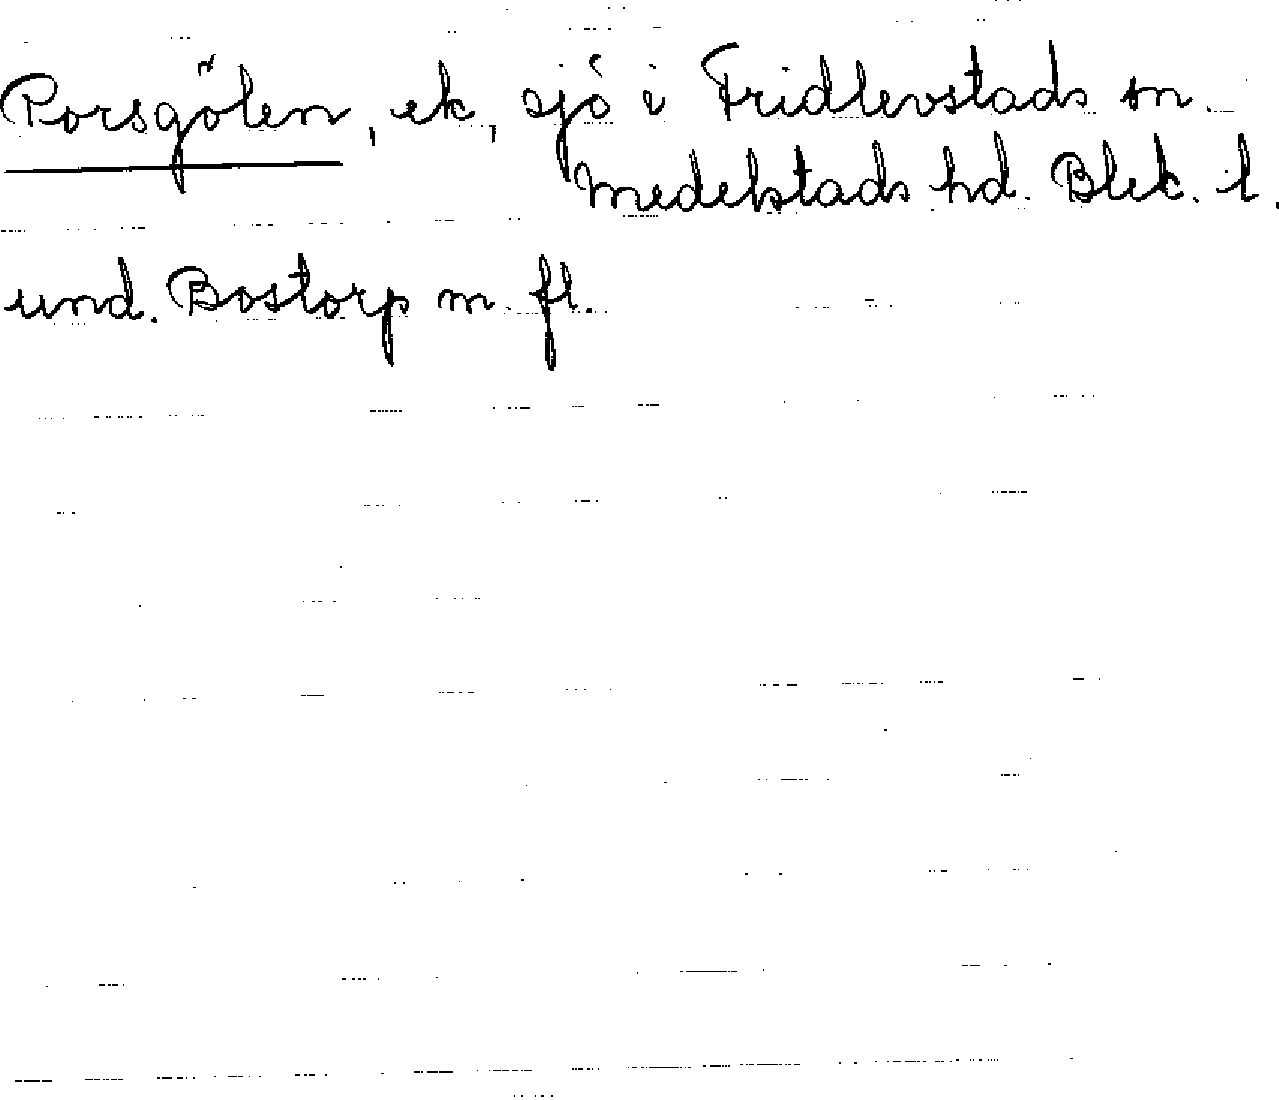 Porsgölen, ek, sjö i Fridlevstads sn.
Medelstads hd. Blek. l.
und. Bostorp m. fl.